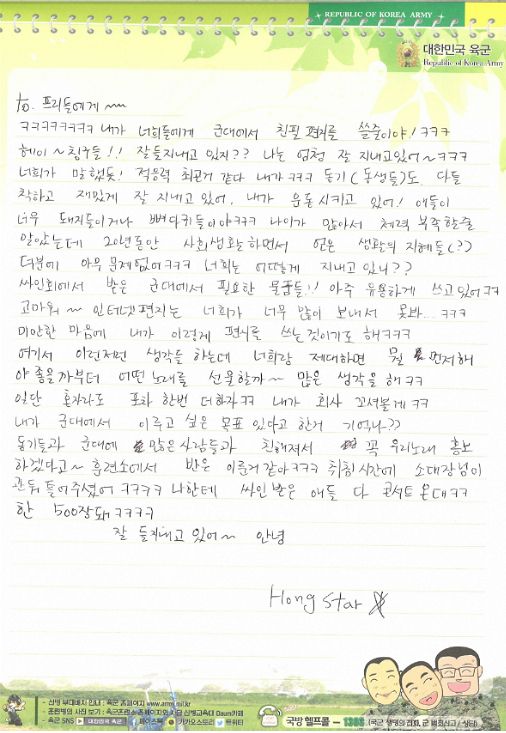 REPUBLIC OF KOREA ARMY
대한민국 육군
Republic of Korea Army
to. 프리들에게 ~~
ㅋㅋㅋㅋㅋㅋㅋㅋ 내가 너희들에게 군대에서 친필 편지를 쓸줄이야! ㅋㅋㅋ
헤이~칭구들!! 잘들지내고 있지?? 나는 엄청 잘 지내고있어~ㅋㅋㅋ
너희가 말했듯! 적응력 최고인거 같다 내가ㅋㅋㅋ 동기(동생들)도 다들
착하고 재밌게 잘 지내고 있어. 내가 운동시키고 있어! 애들이
너무 돼지들이거나 뼈다귀들이야ㅋㅋㅋ 나이가 많아서 체력 부족할줄
알았는데 20년동안 사회생활하면서 얻은 생활의 지혜들(??)
덕분에 아무 문제없어ㅋㅋㅋ 너희는 어떻게 지내고 있니??
싸인회에서 받은 군대에서 필요한 물품들!! 아주 유용하게 쓰고있어ㅋㅋ
고마워~ 인터넷편지는 너희가 너무 많이 보내서 못봐... ㅋㅋㅋ
미안한 마음에 내가 이렇게 편지를 쓰는것이기도 해ㅋㅋㅋ
여기서 이런저런 생각들 하는데 너희랑 제대하면 뭘 먼저해
야좋을까부터 어떤노래를 선물할까~ 많은 생각을 해ㅋㅋ
일단 혼자라도 포차 한번 더하자ㅋㅋ 내가 회사 꼬셔볼게ㅋㅋ
내가 군대에서 이루고 싶은 목표 있다고 한거 기억나??
동기들과 군대에 많은사람들과 친해져서 꼭 우리노래 홍보
하겠다고~ 훈련소에서 반은 이룬거 같아ㅋㅋㅋ 취침시간에 소대장님이
관둬 틀어주셨어 ㅋㅋㅋㅋ 나한테 싸인받은 애들 다 콘서트 온대ㅋㅋ
한 500장돼ㅋㅋㅋㅋ
잘 들지내고 있어~ 안녕
Hong Star
- 신병 부대배치 안내 : 육군 홈페이지 www.army.mil.kr
- 육군 SNS 대한민국 육군 페이스북 카카오스토리 트위터
국방헬프콜 - 1303 (국군 생명의 전화, 군 범죄신고 / 상담)